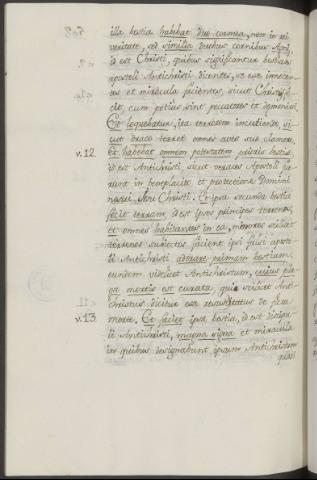 illa bestia habebat duo cornua, non in rei
veritate, sed similia duobus cornibus Agni,
id est Christi, quibus significantur bestiam
apostoli Antichristi dicentes, se esse innocen-
tes et miracula facientes, sicut Christus fe-
cit, cum potius sint peccatores et
Et loquebatur, ita terrorem incutiendo, si-
cut draco terret omnes aves suo clamore,
v. 12. Et habebat omnem potestatem prioris bestiæ
id est Antichristi, sicut veraces Apostoli fue-
runt in beneplacito et protectione Domini
nostri Jesu Christi. Et ipsa secunda bestia
fecit terram, id est ipsos principes terrenos,
et omnes habitantes in ea, minores scilicet
terrenos subjectos facient ipsi falsi aposto-
li Antichristi adorare primam bestiam,
eundem videlicet Antichristum, cujus pla-
ga mortis est curata, quia scilicet Anti-
christus dicitur esse resuscitatus de ficta
v. 13. morte. Et faciet ipsa bestia, id est discipu-
li Antichristi, magna signa et mirabilia
in quibus designabunt ipsum Antichristum
quasi